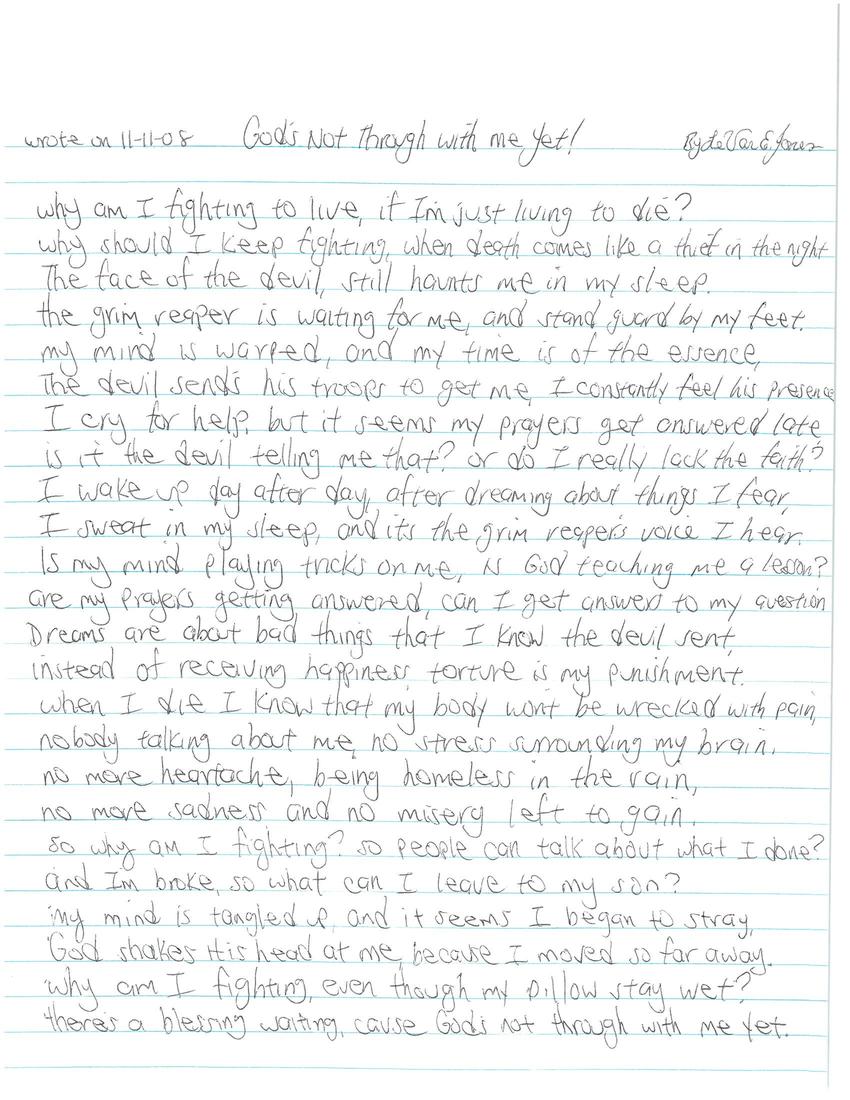 wrote on 11-11-08 God's Not Through with me Yet! By LeVar E. Jones
why am I fighting to live, if I'm just living to die?
why should I keep fighting, when death comes like a thief in the night
The face of the devil, still haunts me in my sleep.
the grim reaper is waiting for me, and stand guard by my feet.
my mind is warped, and my time is of the essence,
The devil sends his troops to get me, I constantly feel his presence
I cry for help, but it seems my prayers get answered late
is it the devil telling me that? or do I really lack the faith?
I wake up day after day, after dreaming about things I fear,
I sweat in my sleep, and its the grim reapers voice I hear.
Is my mind playing tricks on me, is God teaching me a lesson?
are my prayers getting answered, can I get answers to my question
Dreams are about bad things that I know the devil sent,
instead of receiving happiness torture is my punishment.
when I die I know that my body won't be wrecked with pain,
nobody talking about me, no stress surrounding my brain.
no more heartache, being homeless in the rain,
no more sadness and no misery left to gain.
so why am I fighting? so people can talk about what I done?
and I'm broke, so what can I leave to my son?
my mind is tangled up, and it seems I began to stray,
God shakes His head at me, because I moved so far away.
why am I fighting, even though my pillow stay wet?
there's a blessing waiting, cause God's not through with me Yet.